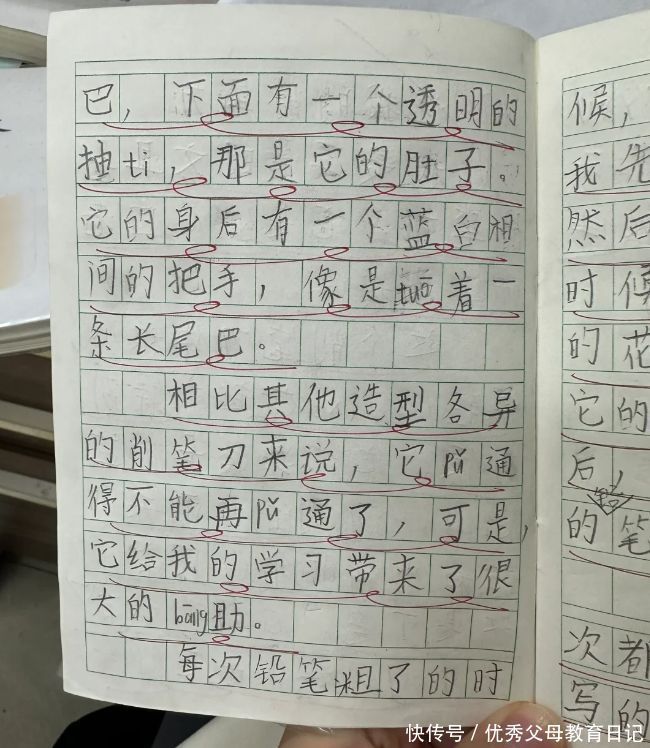 巴，下面有一个透明的
抽tì，那是它的肚子。
它的身后有一个蓝白相
间的把手，像是tuō着一
条长尾巴。
相比其他造型各异
的削笔刀来说，它pǔ通
得不能再pǔ通了，可是，
它给我的学习带来了很
大的bāng助。
每次铅笔粗了的时
候，
我先
然后
时候
的花
它的
后，
铅
的笔
次都
写的
快传号／优秀父母教育日记